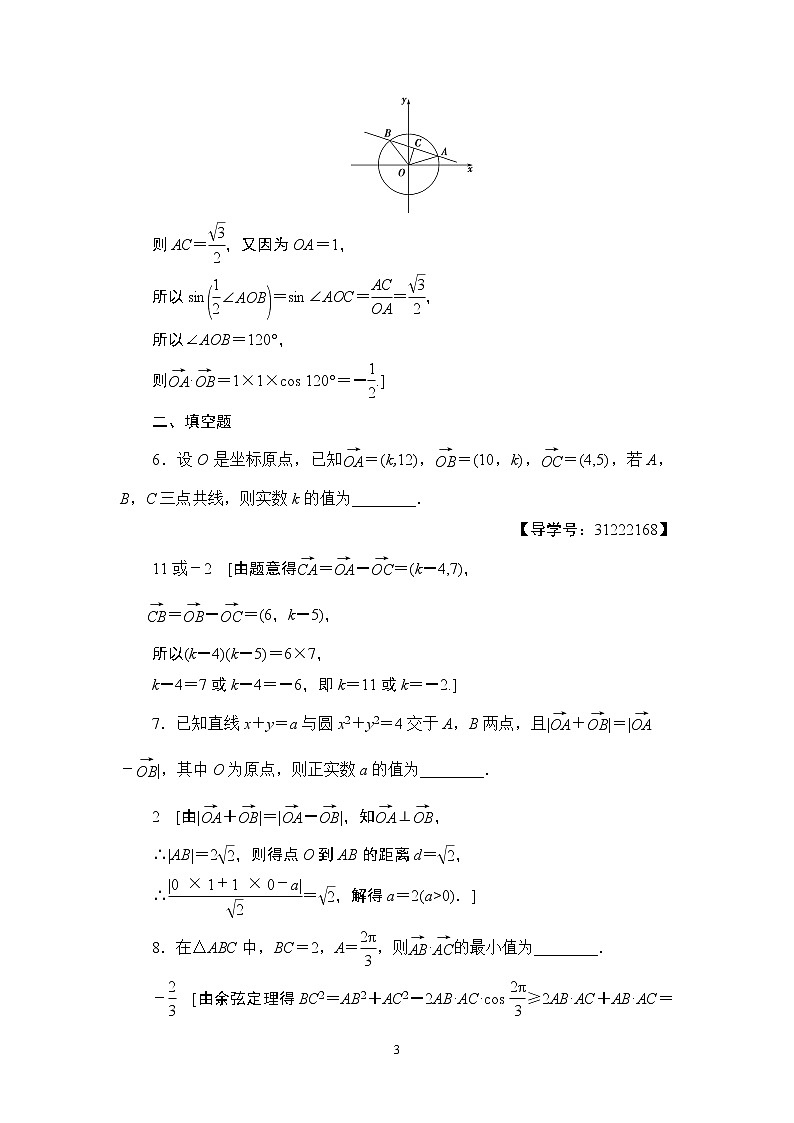 y
B
C
A
O
x
则 AC=√3/2，又因为 OA=1，
所以 sin(1/2∠AOB)=sin ∠AOC=AC/OA=√3/2，
所以∠AOB=120°，
则OA→·OB→=1×1×cos 120°=-1/2.]
二、填空题
6．设 O 是坐标原点，已知OA→=(k,12)，OB→=(10，k)，OC→=(4,5)，若 A，
B，C 三点共线，则实数 k 的值为________．
【导学号：31222168】
11 或-2　[由题意得CA→=OA→-OC→=(k-4,7)，
CB→=OB→-OC→=(6，k-5)，
所以(k-4)(k-5)=6×7，
k-4=7 或 k-4=-6，即 k=11 或 k=-2.]
7．已知直线 x+y=a 与圆 x²+y²=4 交于 A，B 两点，且|OA→+OB→|=|OA→
-OB→|，其中 O 为原点，则正实数 a 的值为________．
2　[由|OA→+OB→|=|OA→-OB→|，知OA→⊥OB→，
∴|AB|=2√2，则得点 O 到 AB 的距离 d=√2，
∴|0 × 1+1 × 0-a|/√2=√2，解得 a=2(a>0)．]
8．在△ABC 中，BC=2，A=2π/3，则AB→·AC→的最小值为________．
-2/3　[由余弦定理得 BC²=AB²+AC²-2AB·AC·cos 2π/3≥2AB·AC+AB·AC=
3